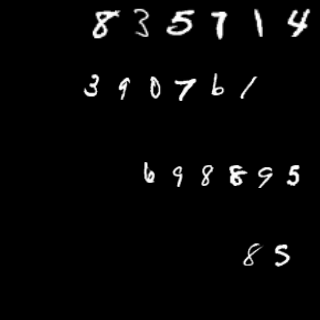 835714
390761
698895
85